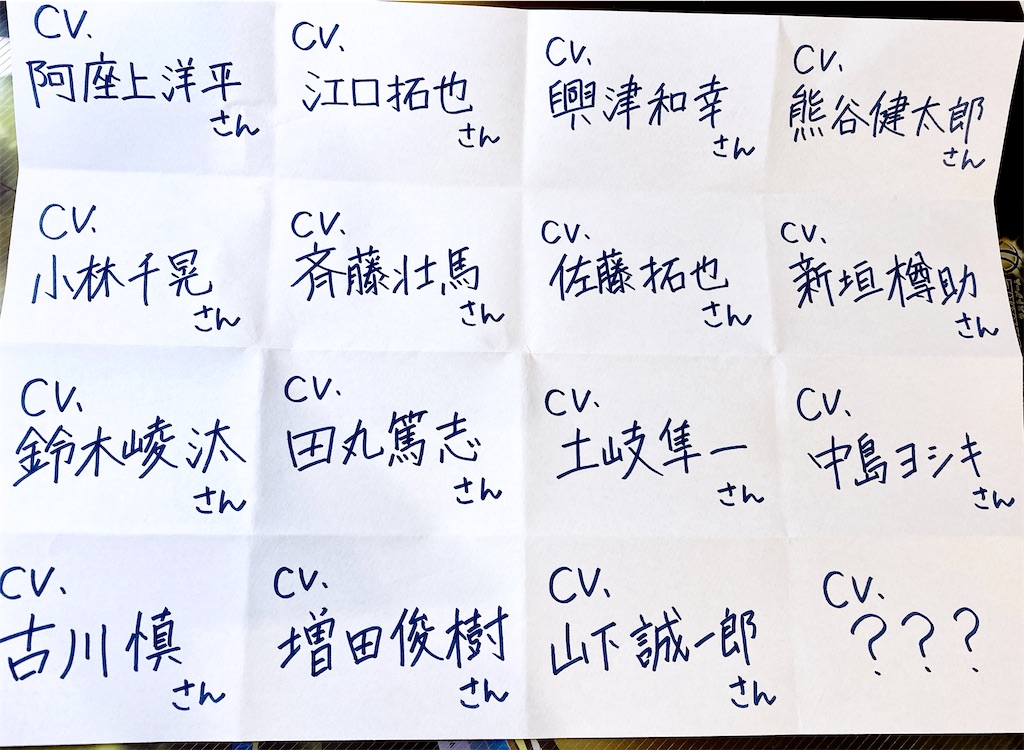 CV.
阿座上洋平
さん
CV.
江口拓也
さん
CV.
興津和幸
さん
CV.
熊谷健太郎
さん
CV.
小林千晃
さん
CV.
斉藤壮馬
さん
CV.
佐藤拓也
さん
CV.
新垣樽助
さん
CV.
鈴木崚汰
さん
CV.
田丸篤志
さん
CV.
土岐隼一
さん
CV.
中島ヨシキ
さん
CV.
古川慎
さん
CV.
増田俊樹
さん
CV.
山下誠一郎
さん
CV.
???